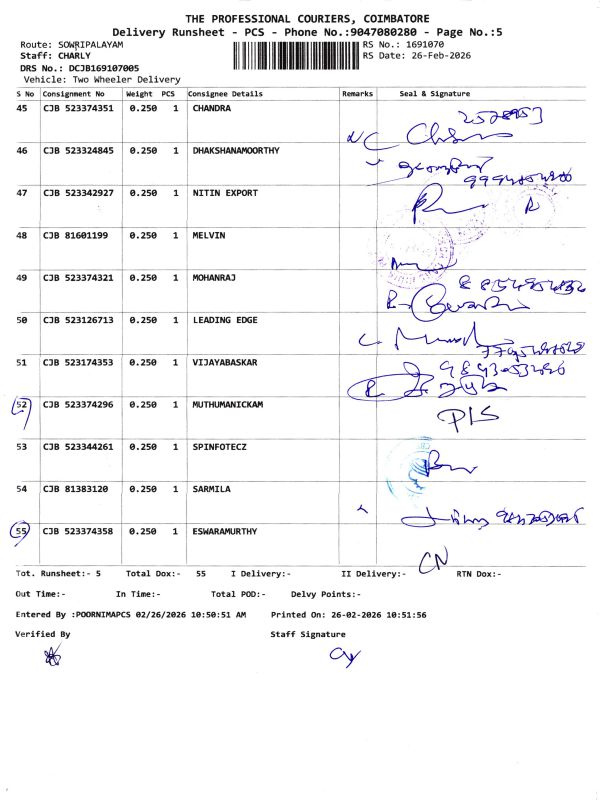 THE PROFESSIONAL COURIERS, COIMBATORE
Delivery Runsheet - PCS - Phone No.:9047080280 - Page No.:5
Route: SOWRIPALAYAM RS No.: 1691070
Staff: CHARLY RS Date: 26-Feb-2026
DRS No.: DCJB169107005
Vehicle: Two Wheeler Delivery
S No Consignment No Weight PCS Consignee Details Remarks Seal & Signature
45 CJB 523374351 0.250 1 CHANDRA
46 CJB 523324845 0.250 1 DHAKSHANAMOORTHY
47 CJB 523342927 0.250 1 NITIN EXPORT
48 CJB 81601199 0.250 1 MELVIN
49 CJB 523374321 0.250 1 MOHANRAJ
50 CJB 523126713 0.250 1 LEADING EDGE
51 CJB 523174353 0.250 1 VIJAYABASKAR
52 CJB 523374296 0.250 1 MUTHUMANICKAM PLS
53 CJB 523344261 0.250 1 SPINFOTECZ
54 CJB 81383120 0.250 1 SARMILA
55 CJB 523374358 0.250 1 ESWARAMURTHY CN
Tot. Runsheet:- 5 Total Dox:- 55 I Delivery:- II Delivery:- RTN Dox:-
Out Time:- In Time:- Total POD:- Delvy Points:-
Entered By :POORNIMAPCS 02/26/2026 10:50:51 AM Printed On: 26-02-2026 10:51:56
Verified By Staff Signature